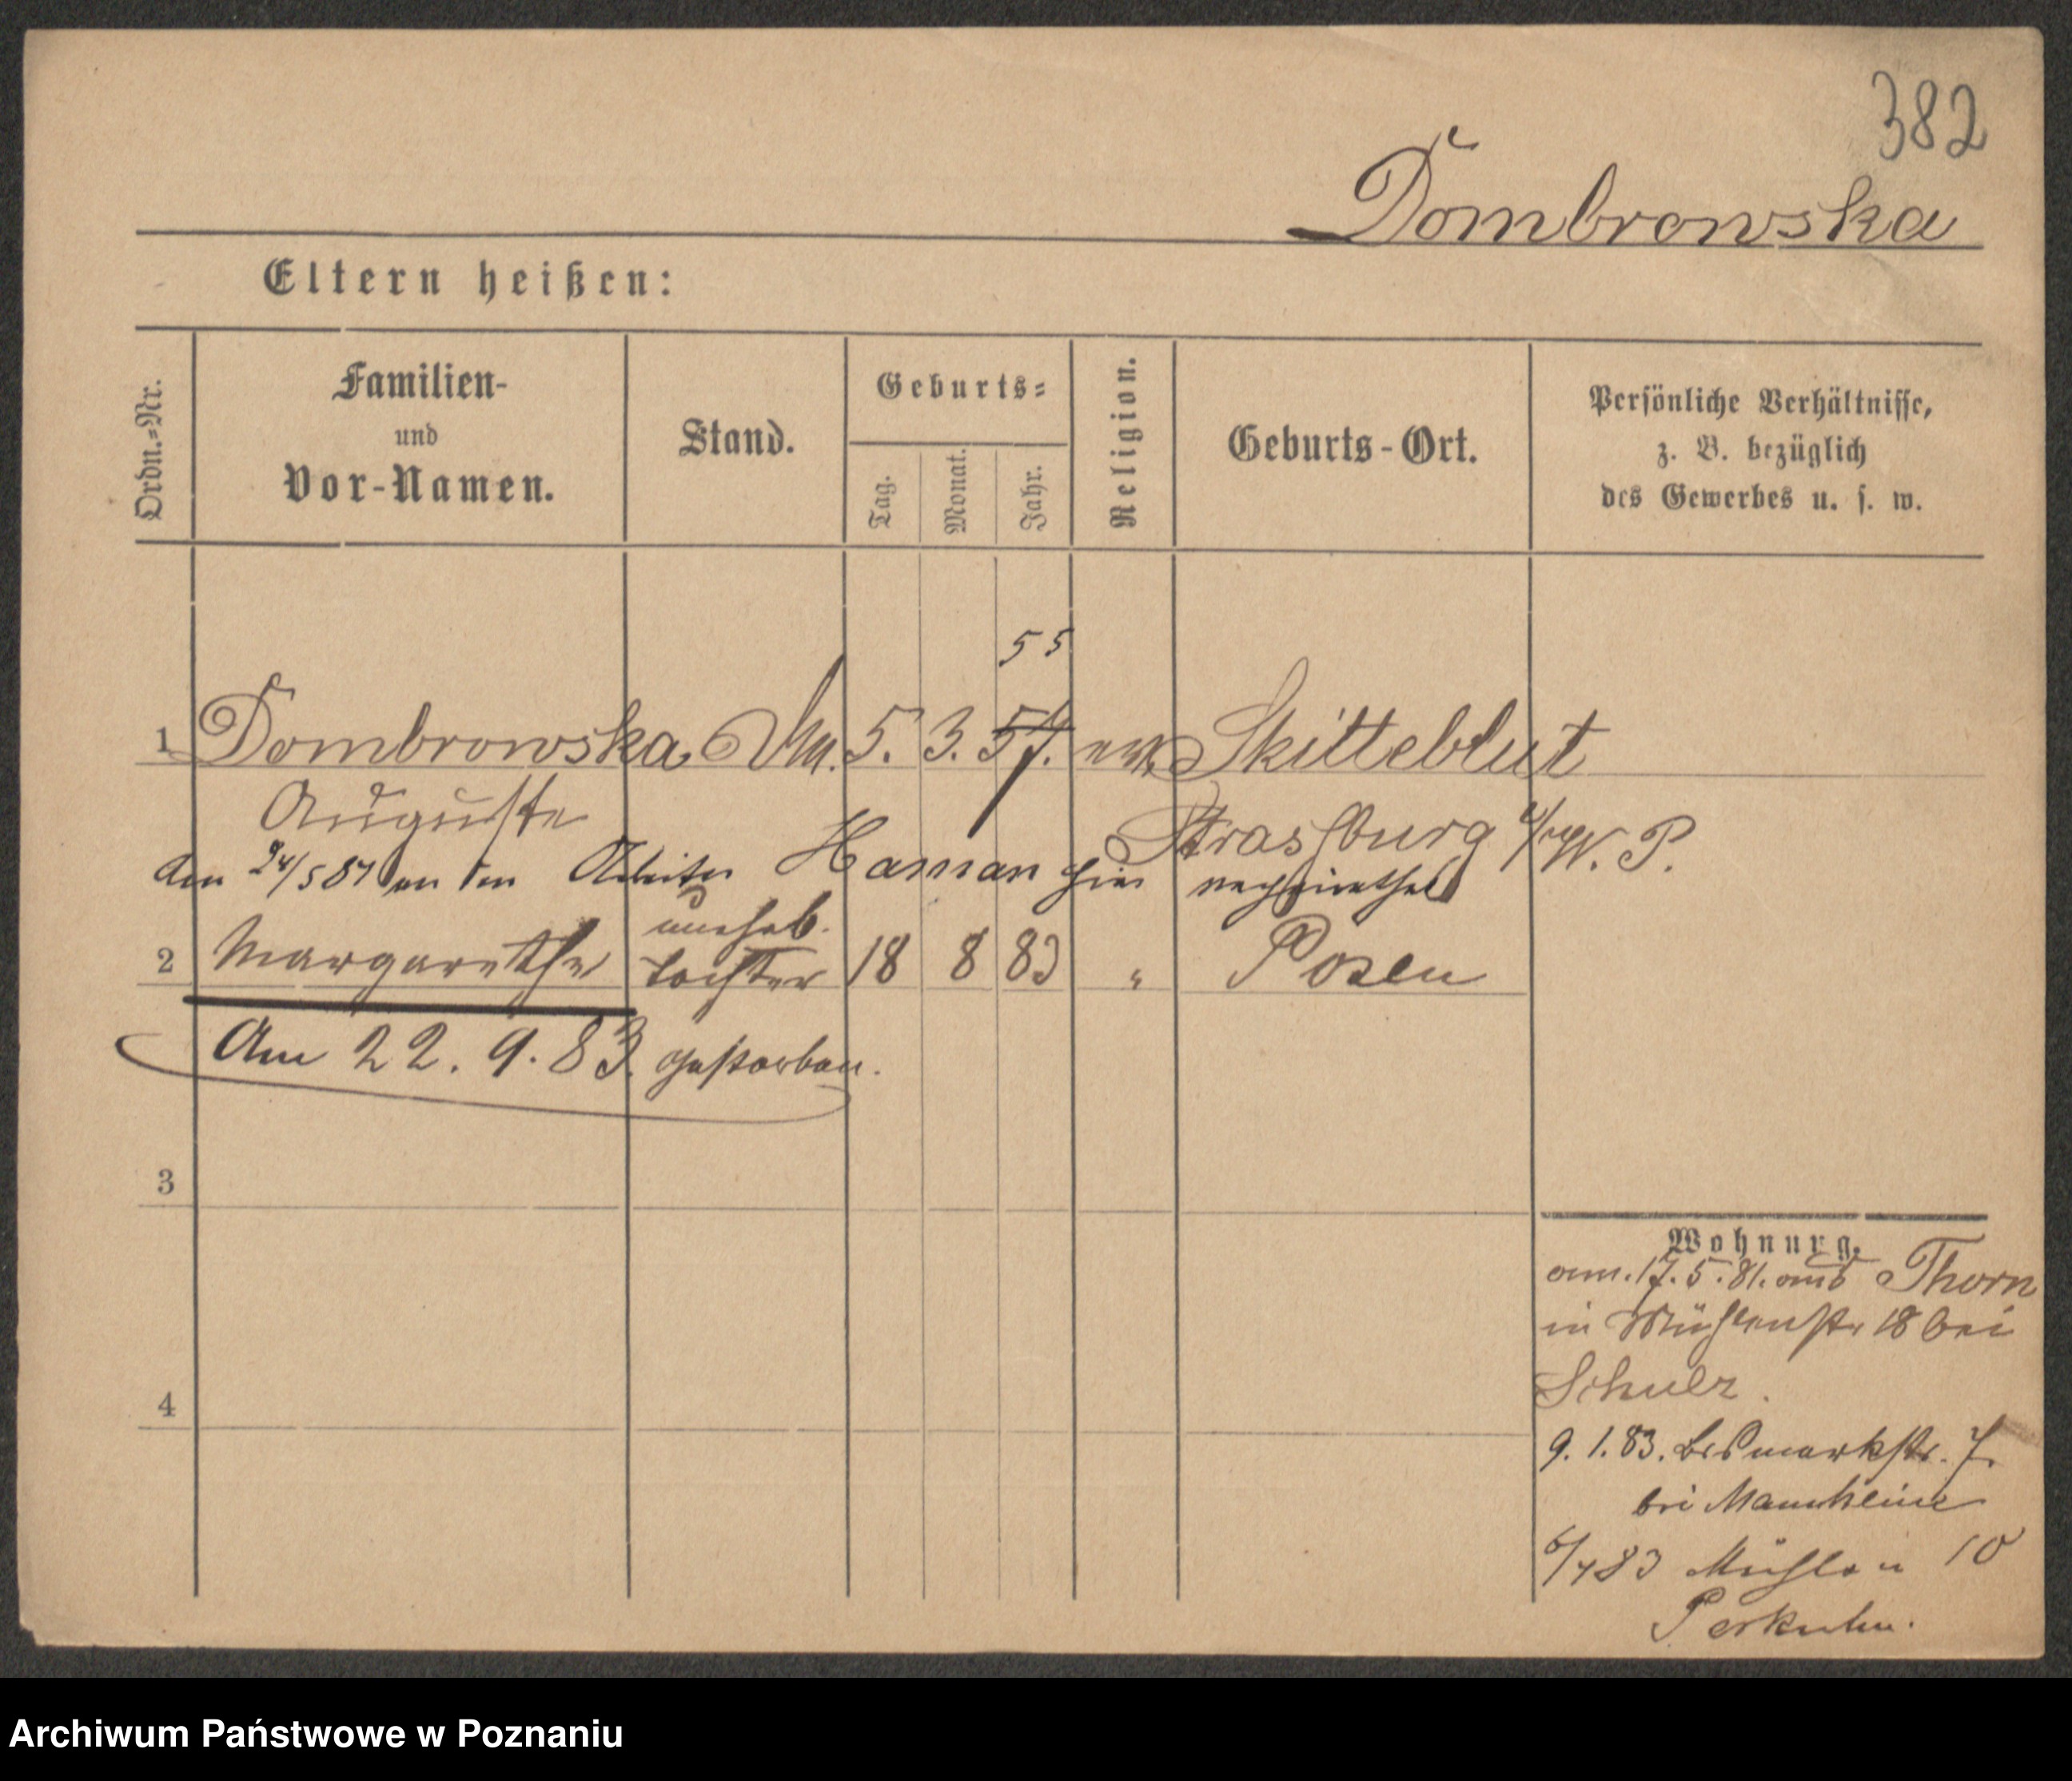 382
Dombrowska
Eltern heißen:
Ordn.-Nr.
Familien-
und
Vor-Namen.
Stand.
Geburts-
Tag.
Monat.
Jahr.
Religion.
Geburts-Ort.
Persönliche Verhältnisse,
z. B. bezüglich
des Gewerbes u. s. w.
55
1 Dombrowska 5. 3. 57. Skitteblut
Auguste Strasburg W. P.
den 24/5 87 an den Arbeiter Haman hier verheirathet
unehel.
2 Margarethe Tochter 18 8 83 " Posen
Am 22. 9. 83. gestorben.
3
4
Wohnung.
am. 17. 5. 81. aus Thorn
in Mühlenstr 18 bei
Schulz.
9. 1. 83. Bismarkstr. 7.
bei Mannheim
6/7 83 Mühlen 10
Archiwum Państwowe w Poznaniu